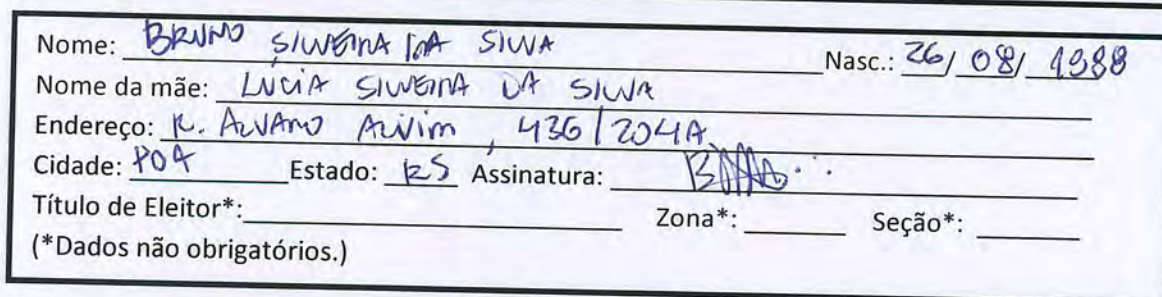 Nome: BRUNO SILVEIRA DA SILVA Nasc.: 26/ 08/ 1988
Nome da mãe: LUCIA SILVEIRA DA SILVA
Endereço: R. ALVARO ALVIM, 436/204A
Cidade: POA Estado: RS Assinatura:
Título de Eleitor*: Zona*: Seção*:
(*Dados não obrigatórios.)